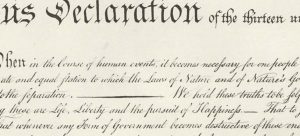 us Declaration of the thirteen un
When in the Course of human events, it becomes necessary for one people
ate and equal station to which the Laws of Nature and of Nature's Go
to the separation. We hold these truths to be self
ng these are Life, Liberty and the pursuit of Happiness. That to
hat whenever any Form of Government becomes destructive of these en